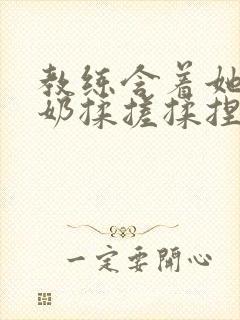 教练含着她
奶揉搓揉捏
一定要開心